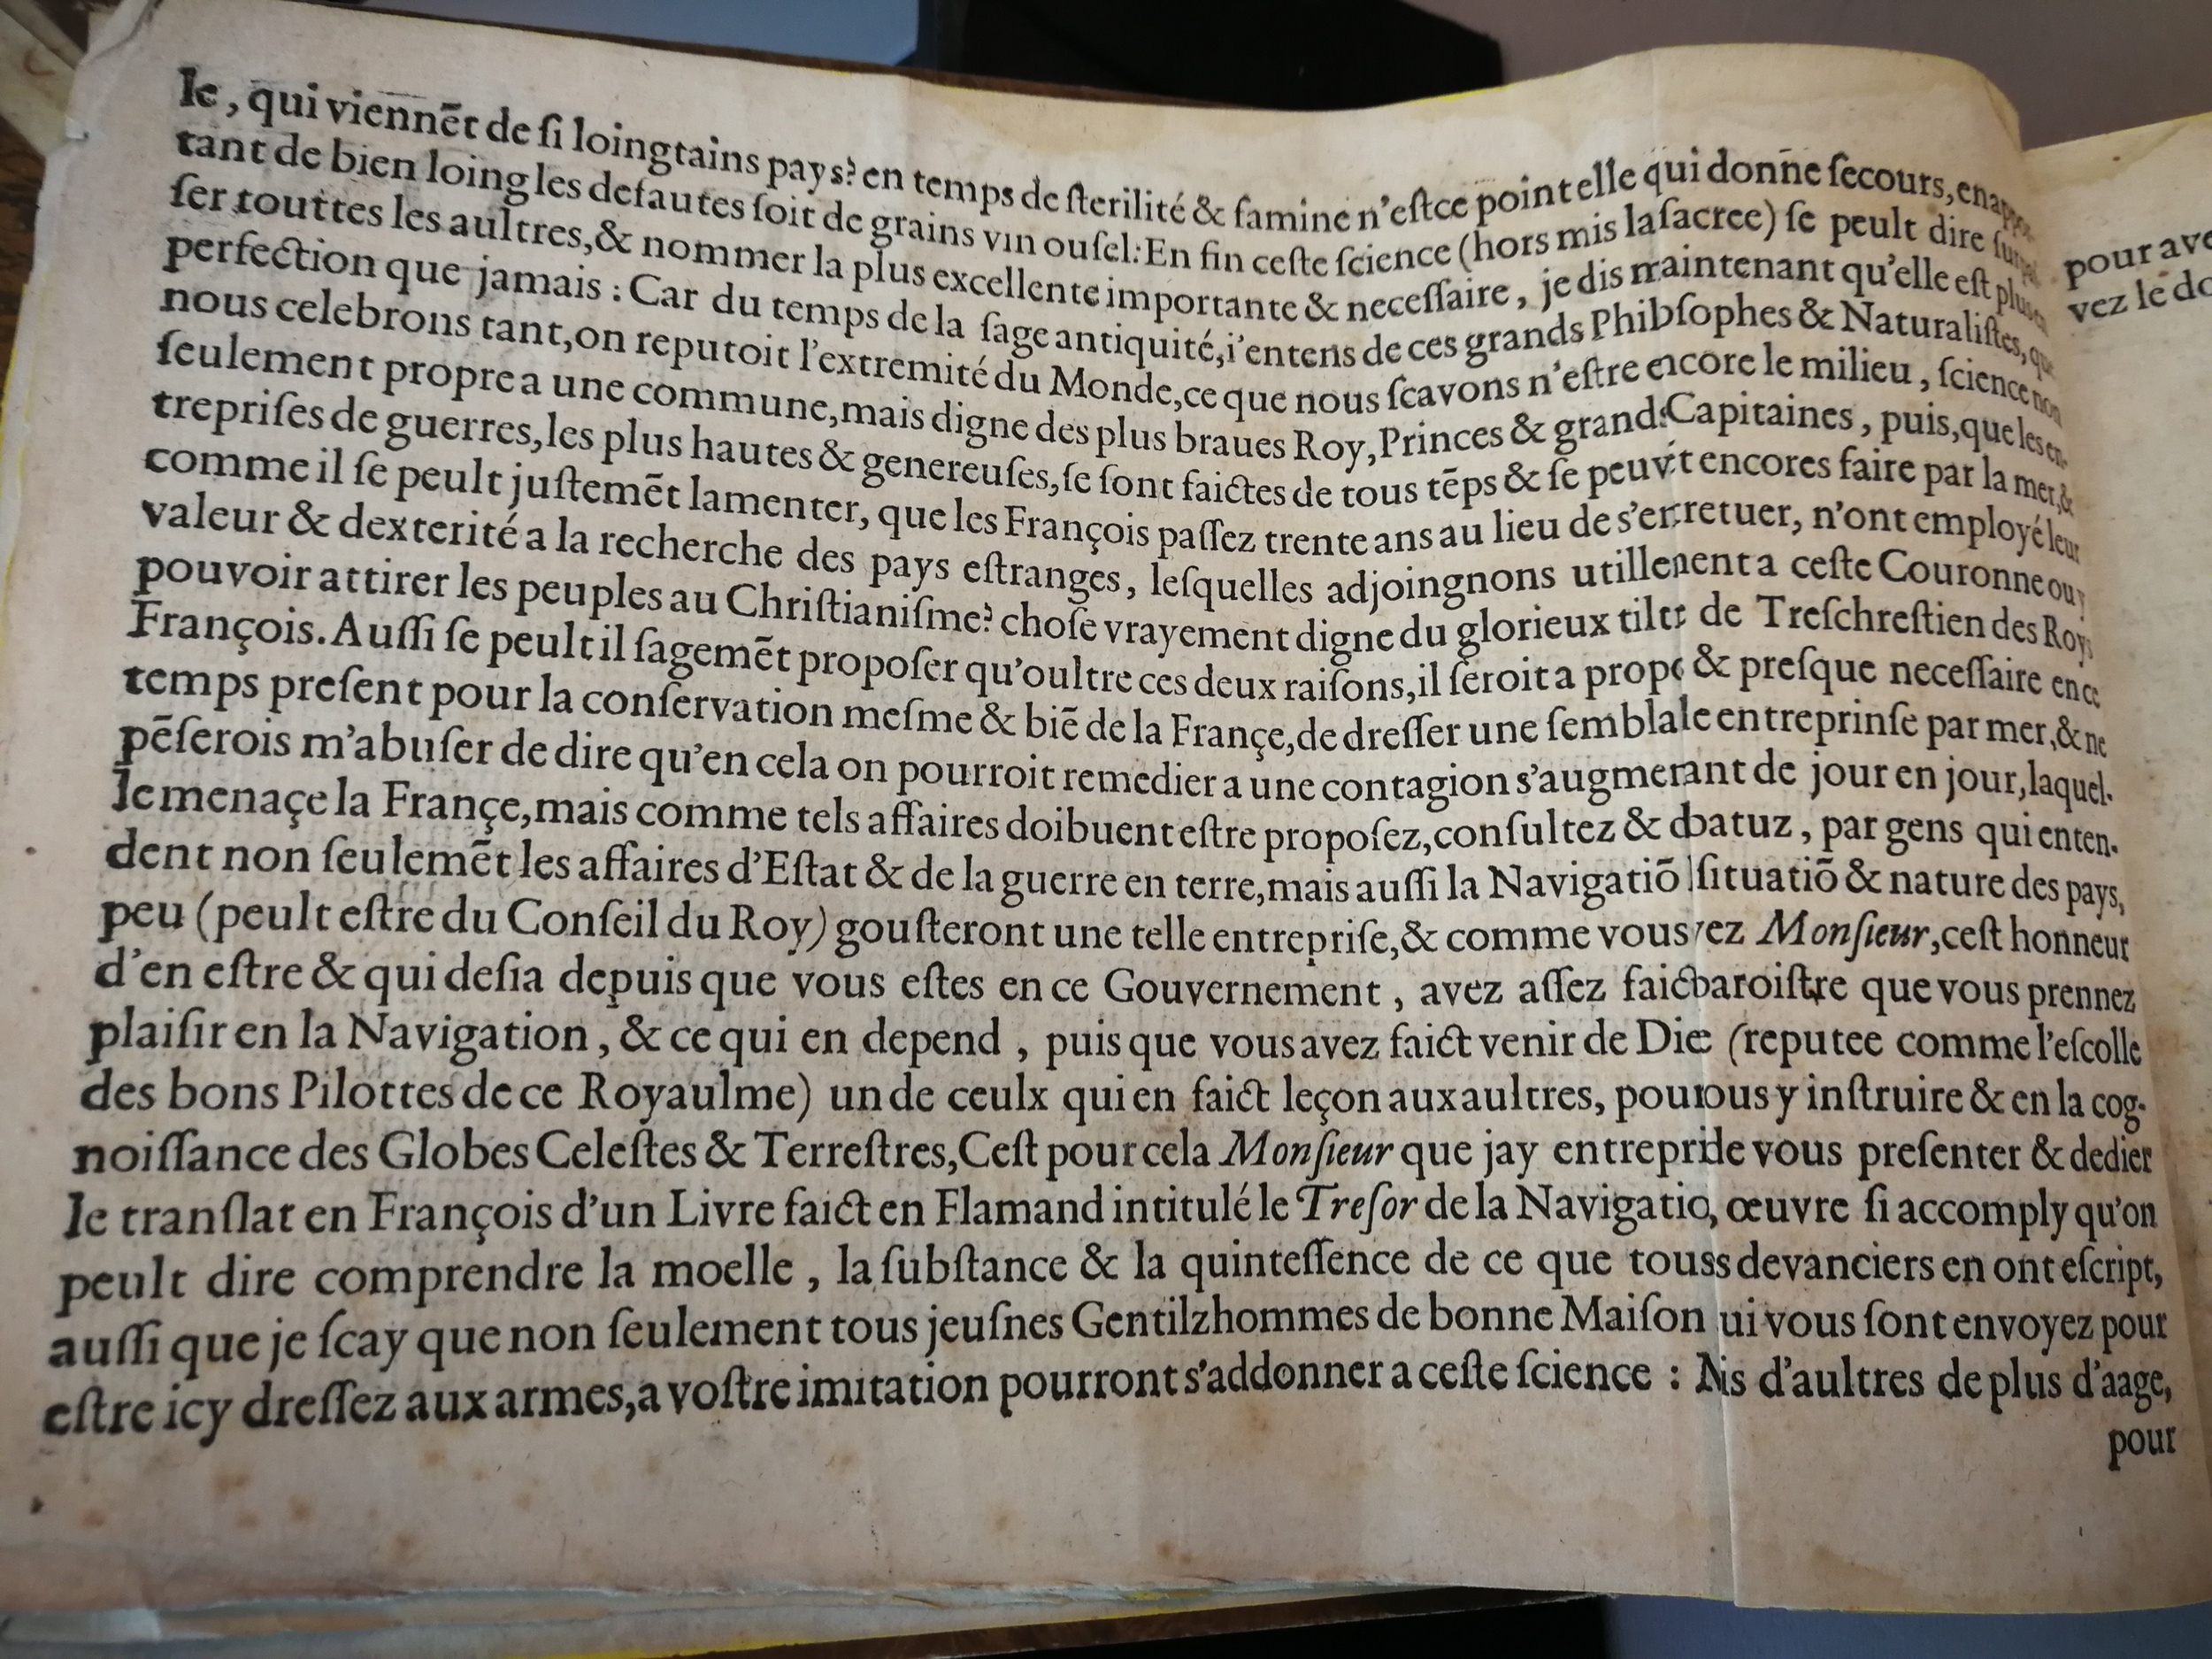 le, qui viennēt de ſi loingtains pays? en temps de ſterilité & famine n'eſtce point elle qui donne ſecours, en appor-
tant de bien loing les defautes ſoit de grains vin ou ſel: En fin ceſte ſcience (hors mis la ſacree) ſe peult dire
ſer touttes les aultres, & nommer la plus excellente importante & neceſſaire, je dis maintenant qu'elle eſt plus
perfection que jamais: Car du temps de la ſage antiquité, i'entens de ces grands Philoſophes & Naturaliſtes, que
nous celebrons tant, on reputoit l'extremité du Monde, ce que nous ſcavons n'eſtre encore le milieu, ſcience non
ſeulement propre a une commune, mais digne des plus braues Roy, Princes & grands Capitaines, puis, que les en-
trepriſes de guerres, les plus hautes & genereuſes, ſe ſont faictes de tous tēps & ſe encores faire par la mer, &
comme il ſe peult juſtemēt lamenter, que les François paſſez trente ans au lieu de n'ont employé leur
valeur & dexterité a la recherche des pays eſtranges, leſquelles adjoingnons a ceſte Couronne ou
pouvoir attirer les peuples au Chriſtianiſme? choſe vrayement digne du glorieux de Treſchreſtien des Roys
François. Auſſi ſe peult il ſagemēt propoſer qu'oultre ces deux raiſons, il ſeroit a & preſque neceſſaire en ce
temps preſent pour la conſervation meſme & biē de la Françe, de dreſſer une entreprinſe par mer, & ne
pēſerois m'abuſer de dire qu'en cela on pourroit remedier a une contagion de jour en jour, laquel-
le menaçe la Françe, mais comme tels affaires doibuent eſtre propoſez, conſultez & par gens qui enten-
dent non ſeulemēt les affaires d'Eſtat & de la guerre en terre, mais auſſi la Navigatiō ſituatiō & nature des pays,
peu (peult eſtre du Conſeil du Roy) gouſteront une telle entrepriſe, & comme vous Monſieur, ceſt honneur
d'en eſtre & qui deſia depuis que vous eſtes en ce Gouvernement, avez aſſez que vous prennez
plaiſir en la Navigation, & ce qui en depend, puis que vous avez faict venir de (reputee comme l'eſcolle
des bons Pilottes de ce Royaulme) un de ceulx qui en faict leçon aux aultres, pour y inſtruire & en la cog-
noiſſance des Globes Celeſtes & Terreſtres, Ceſt pour cela Monſieur que jay vous preſenter & dedier
le tranſlat en François d'un Livre faict en Flamand intitulé le Treſor de la œuvre ſi accomply qu'on
peult dire comprendre la moelle, la ſubſtance & la quinteſſence de ce que devanciers en ont eſcript,
auſſi que je ſcay que non ſeulement tous jeuſnes Gentilzhommes de bonne Maiſon vous ſont envoyez pour
eſtre icy dreſſez aux armes, a voſtre imitation pourront s'addonner a ceſte ſcience: d'aultres de plus d'aage,
pour
pour
vez le